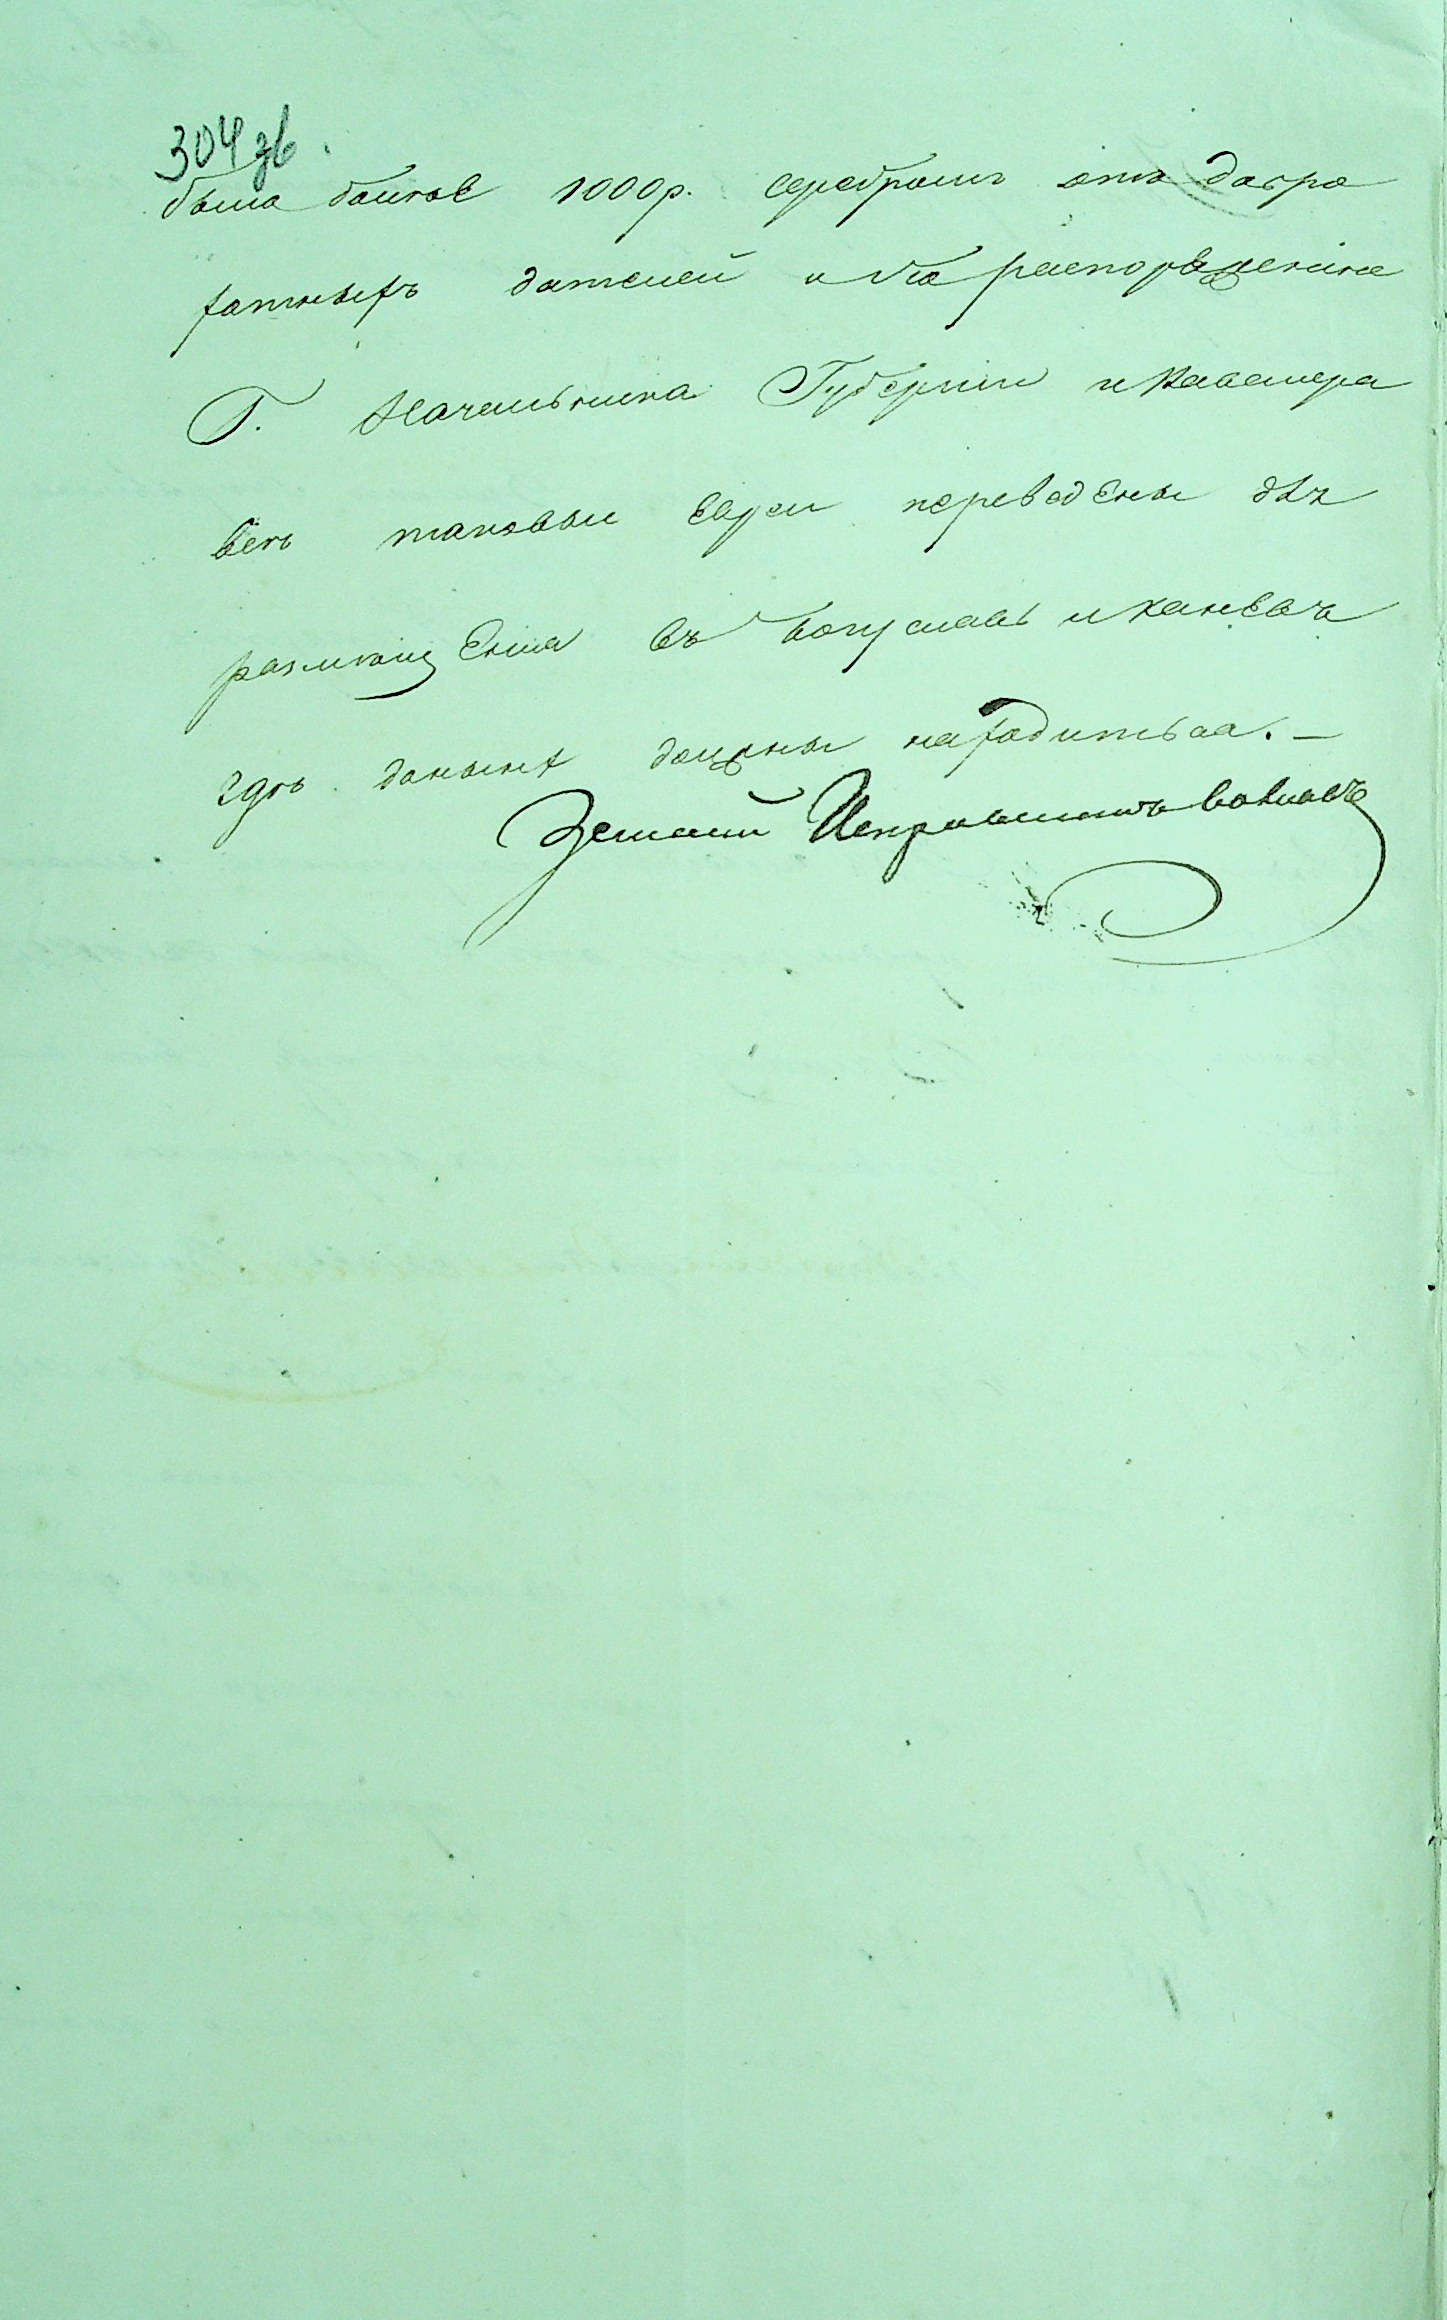 304 зв.
было болѣе 1000 р. серебромъ отъ добро
хотныхъ дателей и по распоряженію
Г. Начальника Губерніи и Кавалера
всѣ таковыи евреи переведены для
размѣщенія въ Богуславъ и Каневъ
гдѣ должны находиться. —
Земскій Исправникъ